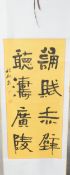 誦賦赤壁
聽濤廣陵